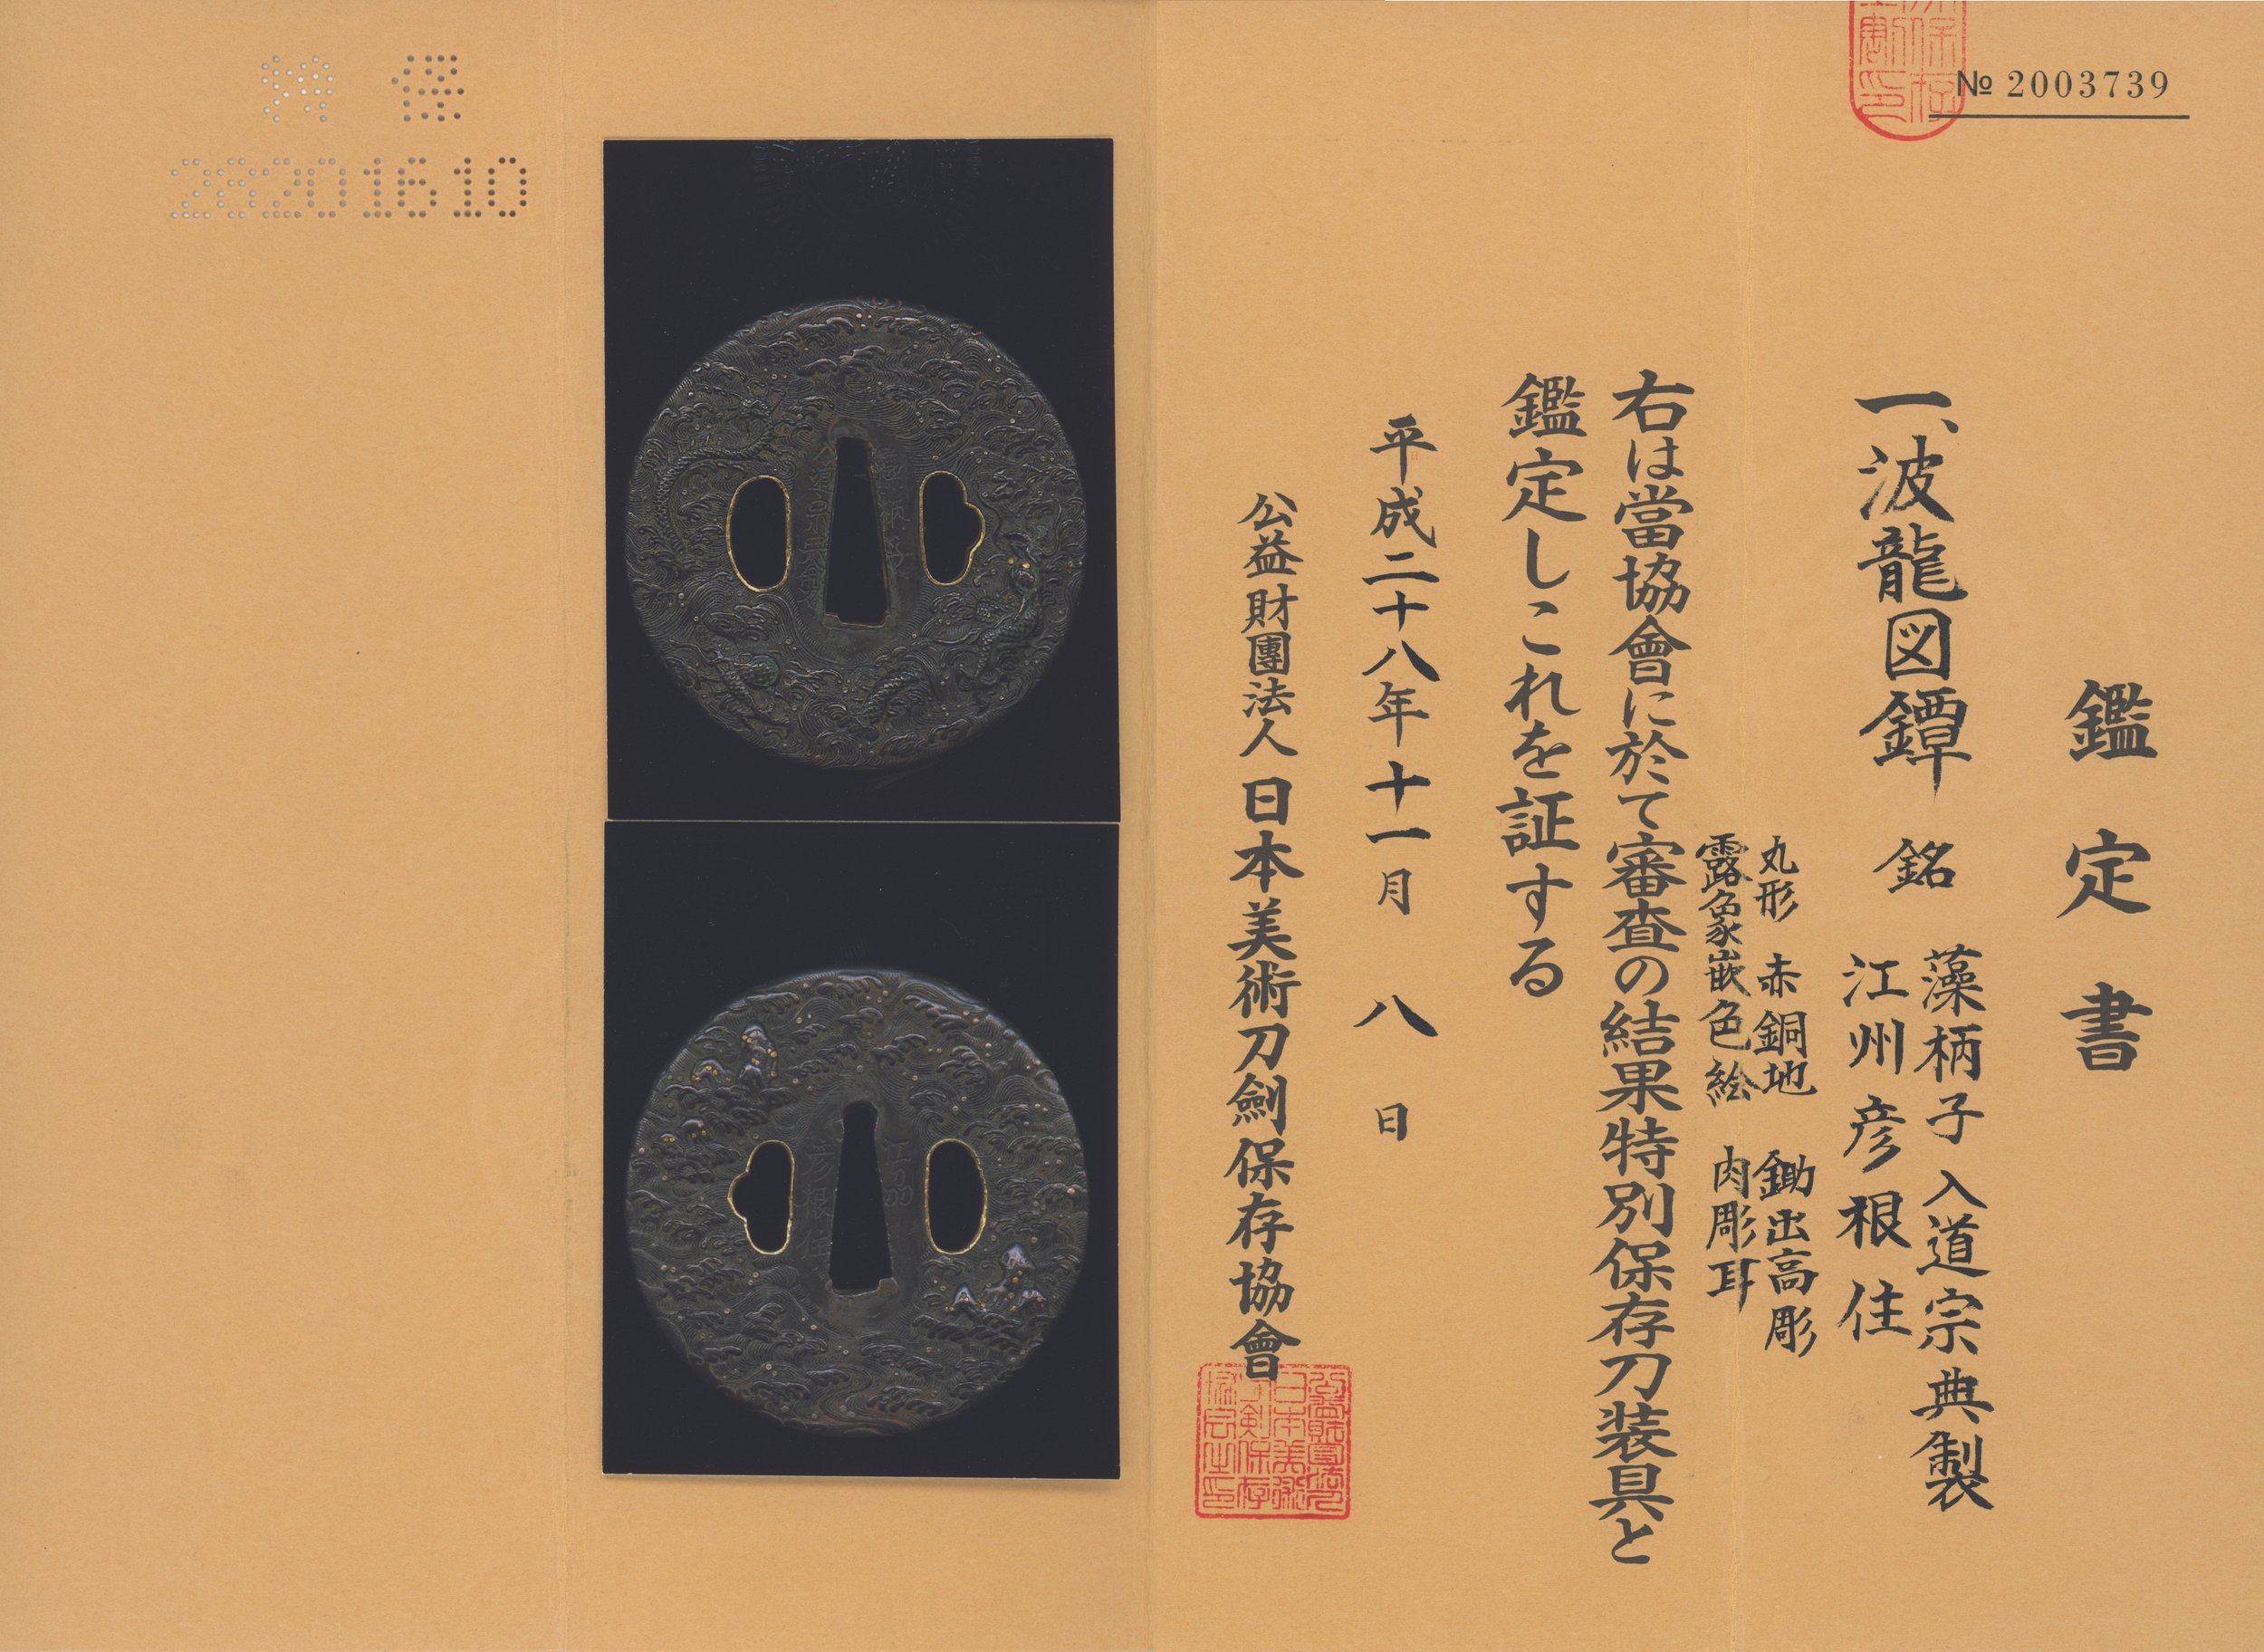 № 2003739
鑑定書
一、波龍図鐔 銘
藻柄子入道宗典製
江州彦根住
丸形 赤銅地 鋤出高彫
露象嵌色絵 肉彫耳
右は當協會に於て審査の結果特別保存刀装具と
鑑定しこれを証する
平成二十八年十一月八日
公益財團法人 日本美術刀劍保存協會
江州
彦根住